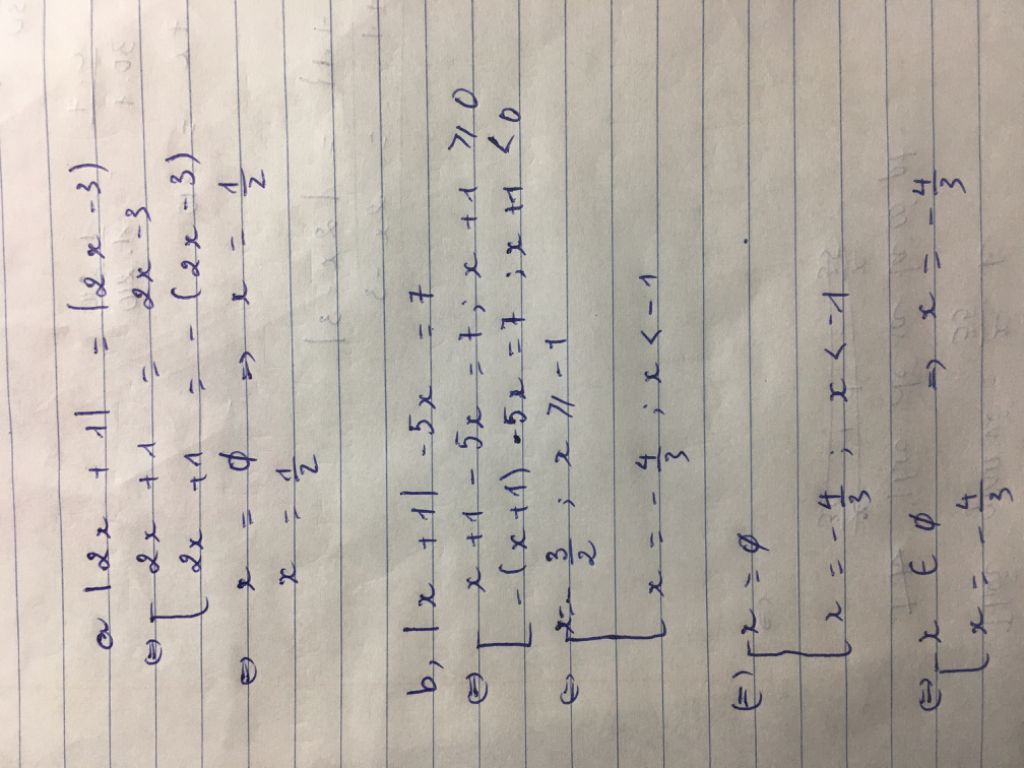 a |2x + 1| = |2x - 3)
⇔ [ 2x + 1 = 2x - 3
2x + 1 = - (2x - 3)
⇔ x = ∅ ⇒ x = 1/2
x = 1/2
b, |x + 1| - 5x = 7
⇔ [ x + 1 - 5x = 7 ; x + 1 ⩾ 0
- (x + 1) - 5x = 7 ; x + 1 < 0
⇔ [ x = - 3/2 ; x ⩾ -1
x = - 4/3 ; x < -1
(=) [ x = ∅
x = - 4/3 ; x < -1
⇔ [ x ∈ ∅ ⇒ x = - 4/3
x = - 4/3